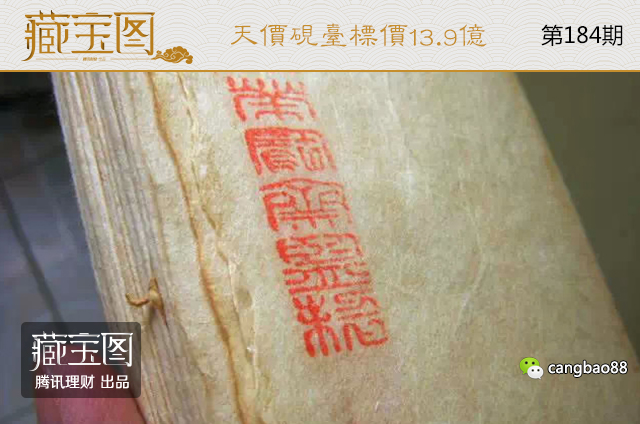 藏宝图
天價硯臺標價13.9億
第184期
藏宝图
腾讯理财 出品
cangbao88